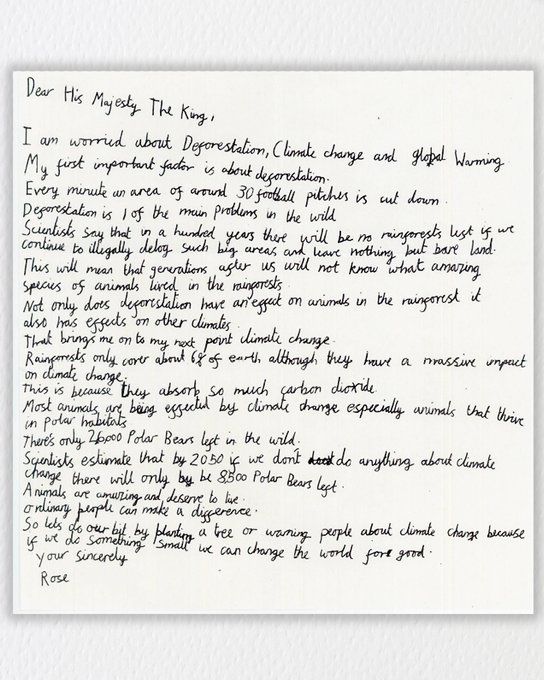 Dear His Majesty The King,
I am worried about Deforestation, Climate change and global Warming
My first important factor is about deforestation.
Every minute an area of around 30 football pitches is cut down.
Deforestation is 1 of the main problems in the wild
Scientists say that in a hundred years there will be no rainforests left if we
continue to illegally delog such big areas and leave nothing but bare land.
This will mean that generations after us will not know what amazing
species of animals lived in the rainforests.
Not only does deforestation have an effect on animals in the rainforest it
also has effects on other climates.
That brings me on to my next point climate change.
Rainforests only cover about 6% of earth although they have a massive impact
on climate change.
This is because they absorb so much carbon dioxide.
Most animals are being effected by climate change especially animals that thrive
in polar habitats
There's only 26000 Polar Bears left in the wild.
Scientists estimate that by 2050 if we don't do anything about climate
change there will only by be 8,500 Polar Bears left.
Animals are amazing and deserve to live.
ordinary people can make a difference.
So lets do our bit by planting a tree or warning people about climate change because
if we do something small we can change the world for good.
Your sincerely
Rose